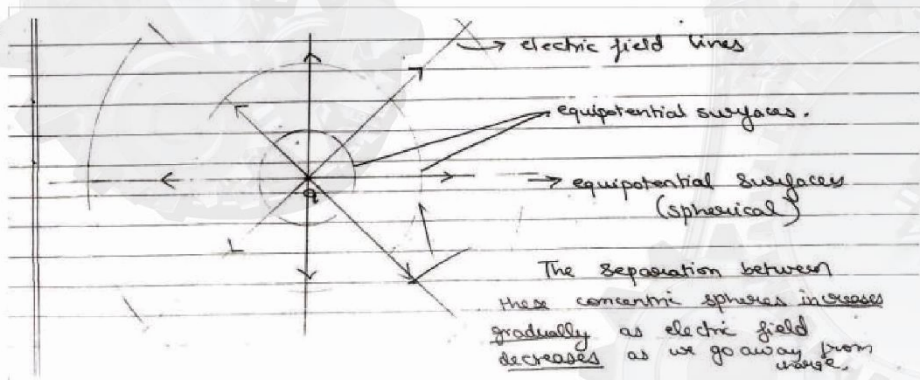 electric field lines
equipotential surfaces.
equipotential surfaces
(spherical)
q
The separation between
these concentric spheres increases
gradually as electric field
decreases as we go away from
charge.